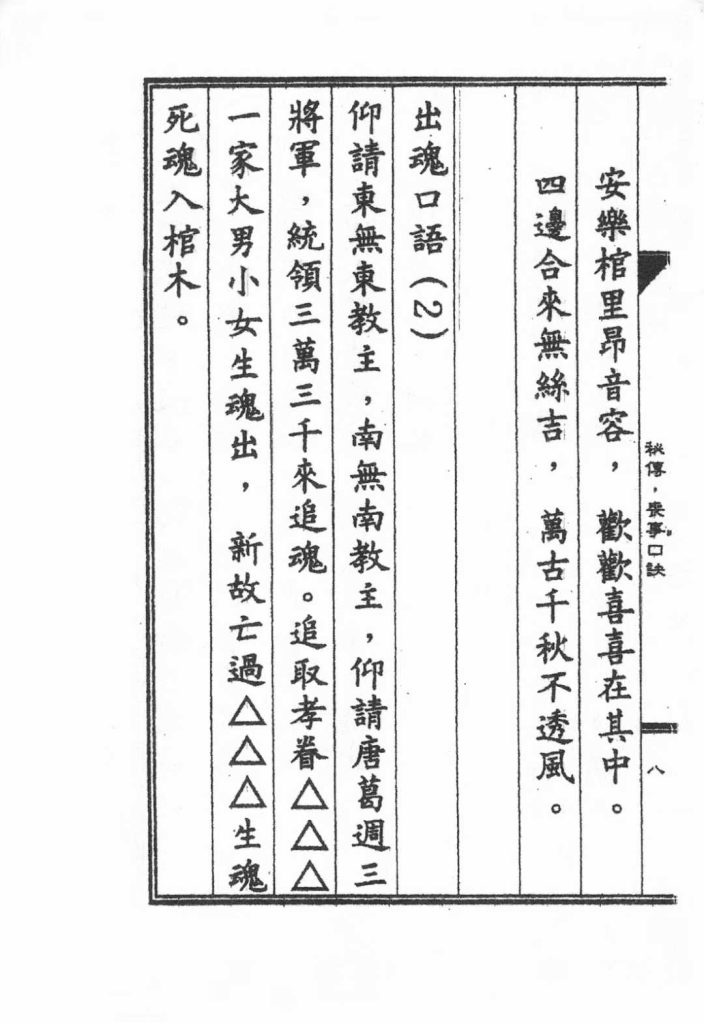 秘傳，喪事口訣
八
安樂棺里昂音容，歡歡喜喜在其中。
四邊合來無絲吉，萬古千秋不透風。
出魂口語(2)
仰請東無東教主，南無南教主，仰請唐葛週三
將軍，統領三萬三千來追魂。追取孝眷△△△
一家大男小女生魂出，新故亡過△△△生魂
死魂入棺木。